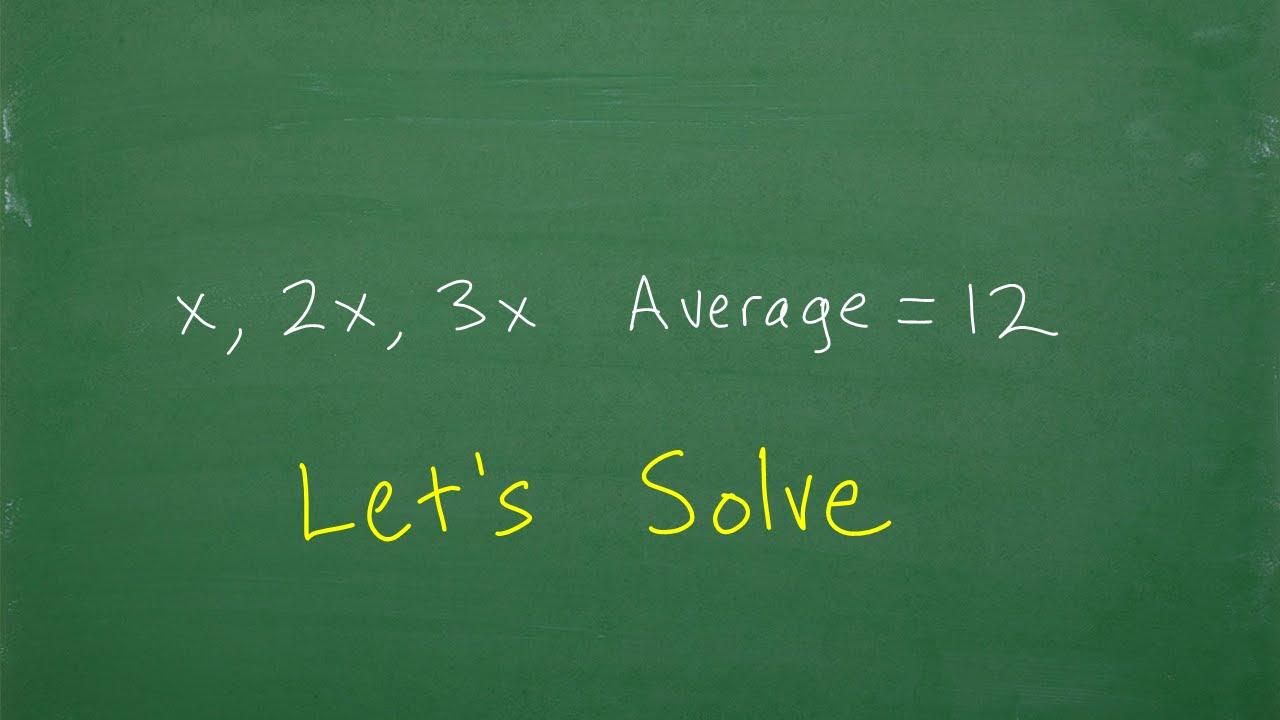 x, 2x, 3x Average = 12
Let's Solve